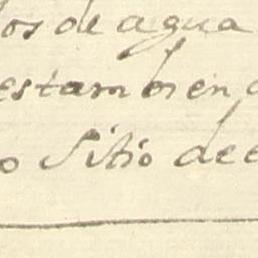 os de agua
estambien
o Sitio de